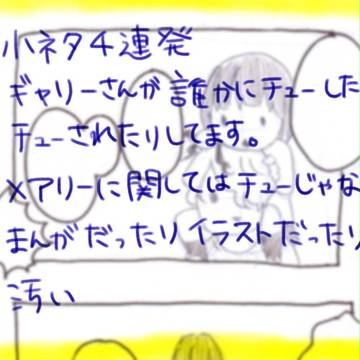 小ネタ4連発
ギャリーさんが誰かにチューした
チューされたりしてます。
メアリーに関してはチューじゃな
まんがだったりイラストだったり
汚い